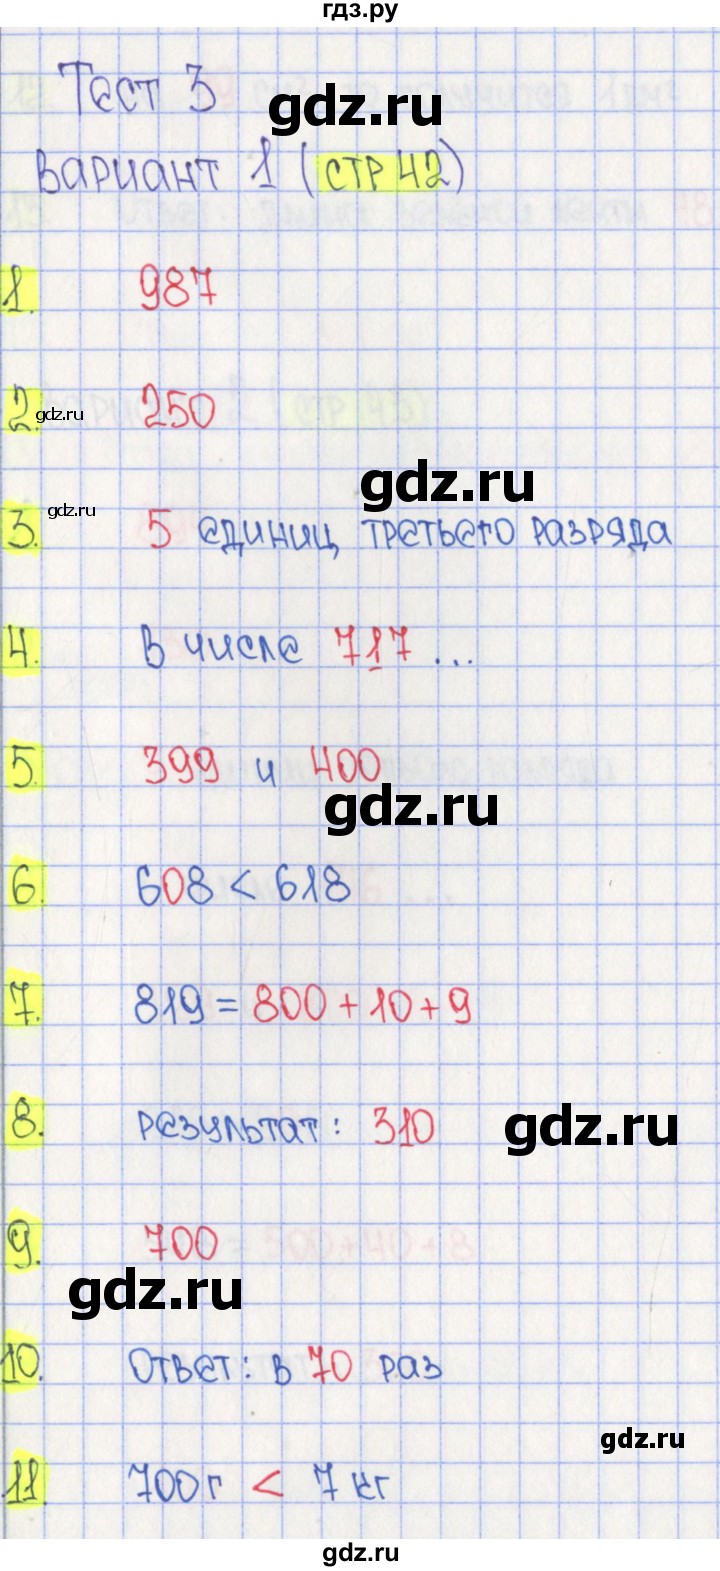 гдз.ру
Тест 3
gdz.ru
вариант 1 (стр 42)
1. 987
2. 250
gdz.ru
gdz.ru
gdz.ru
3. 5 единиц третьего разряда
4. в числе 717 ...
5. 399 и 400
gdz.ru
6. 608 < 618
7. 819 = 800 + 10 + 9
8. результат: 310
gdz.ru
9. 700
gdz.ru
10. Ответ: в 70 раз
gdz.ru
11. 700 г < 7 кг
gdz.ru